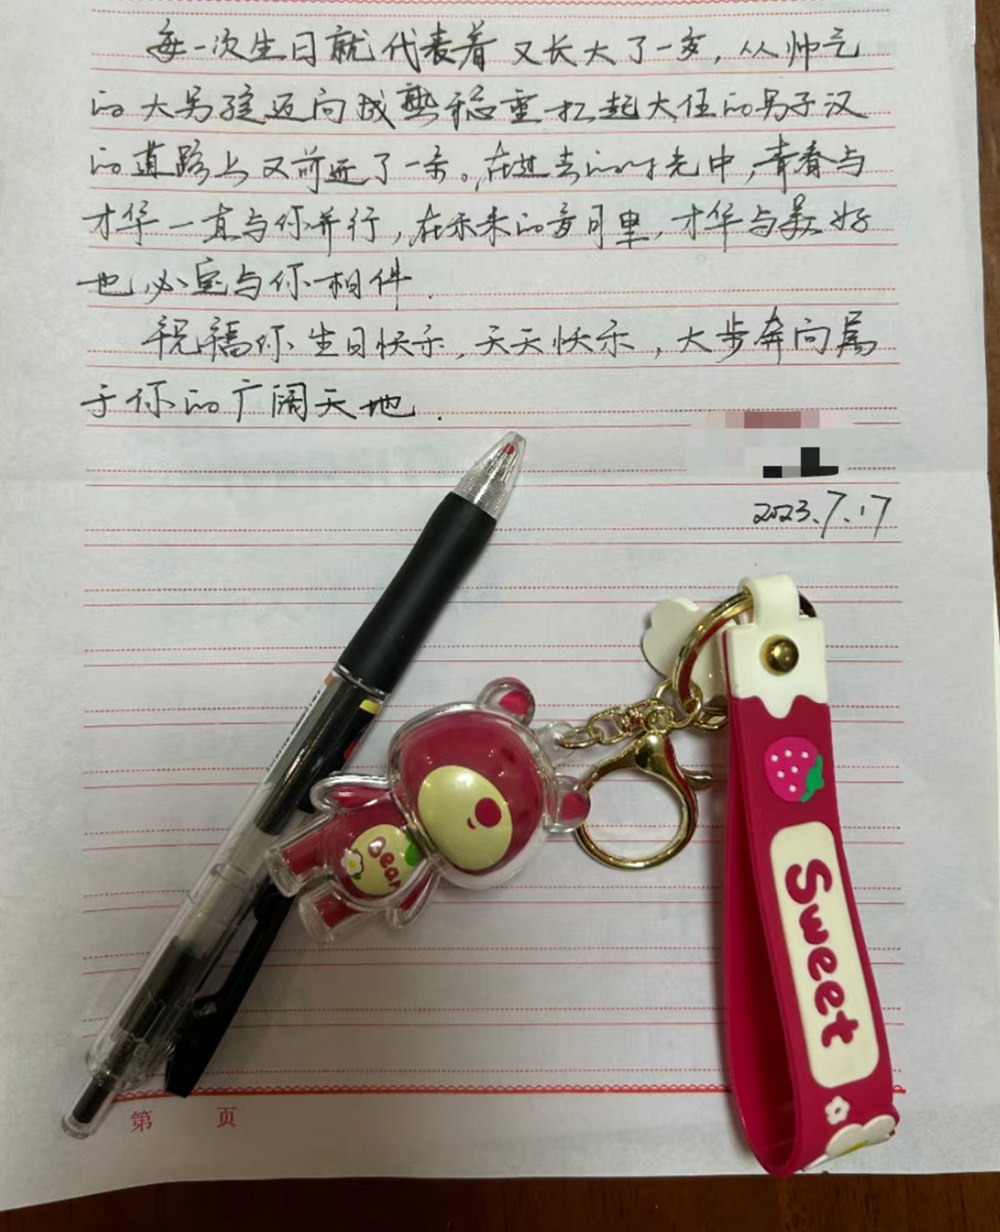 每一次生日就代表着又长大了一岁，从帅气
的大男孩迈向成熟稳重扛起大任的男子汉
的道路上又前进了一步。在过去的时光中，青春与
才华一直与你并行，在未来的岁月里，才华与美好
也必定与你相伴.
祝福你生日快乐，天天快乐，大步奔向属
于你的广阔天地.
2023.7.17
Bear
Sweet
第 页